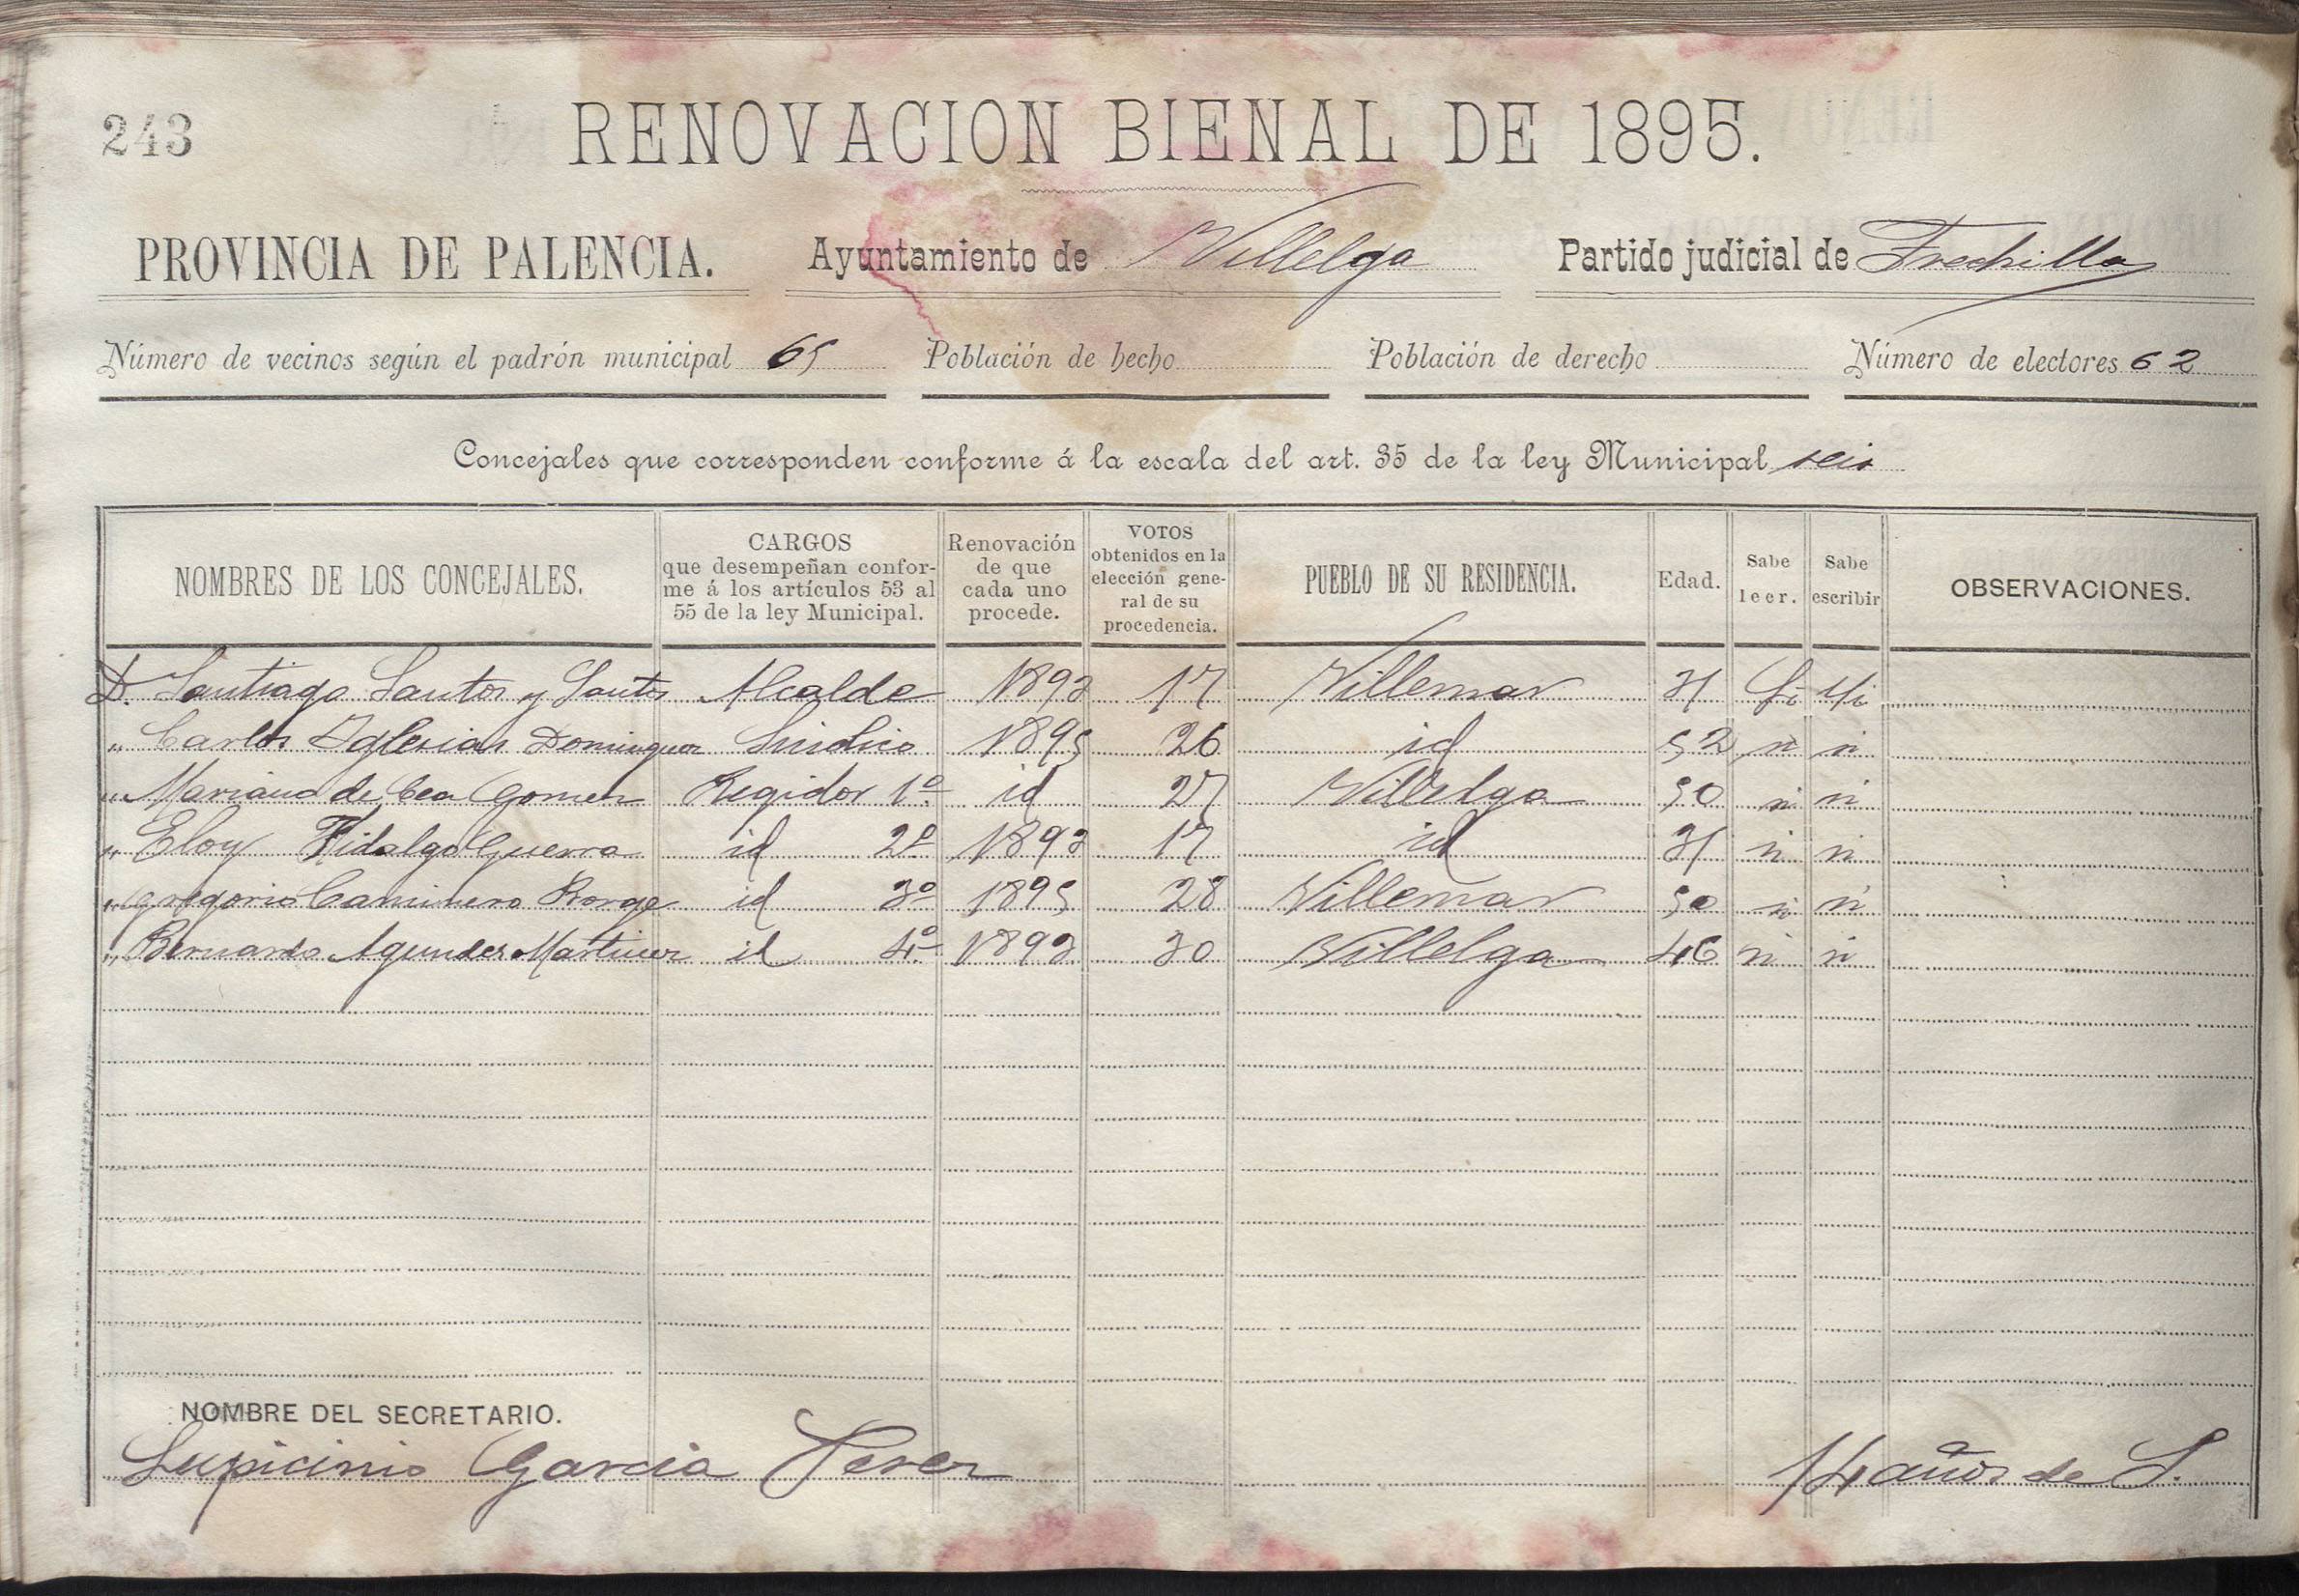 243
RENOVACION BIENAL DE 1895.
PROVINCIA DE PALENCIA. Ayuntamiento de Villelga Partido judicial de Frechilla
Número de vecinos según el padrón municipal 65 Población de hecho Población de derecho Número de electores 62
Concejales que corresponden conforme á la escala del art. 35 de la ley Municipal seis
NOMBRES DE LOS CONCEJALES. CARGOS que desempeñan conforme á los artículos 53 al 55 de la ley Municipal. Renovación de que cada uno procede. VOTOS obtenidos en la elección general de su procedencia. PUEBLO DE SU RESIDENCIA. Edad. Sabe leer. Sabe escribir OBSERVACIONES.
D. Santiago Santos y Santos Alcalde 1893 17 Villemar 31 Si Si
" Carlos Iglesias Dominguez Sindico 1895 26 id 52 " "
" Mariano de Cea Gomez Regidor 1º id 27 Villelga 50 " "
" Eloy Fidalgo Guerra id 2º 1893 17 id 31 " "
" Gregorio Caminero Borge id 3º 1895 28 Villemar 50 " "
" Bernardo Agundez Martinez id 4º 1893 30 Villelga 46 " "
NOMBRE DEL SECRETARIO.
Lupicinio Garcia Perez 14 años de S.